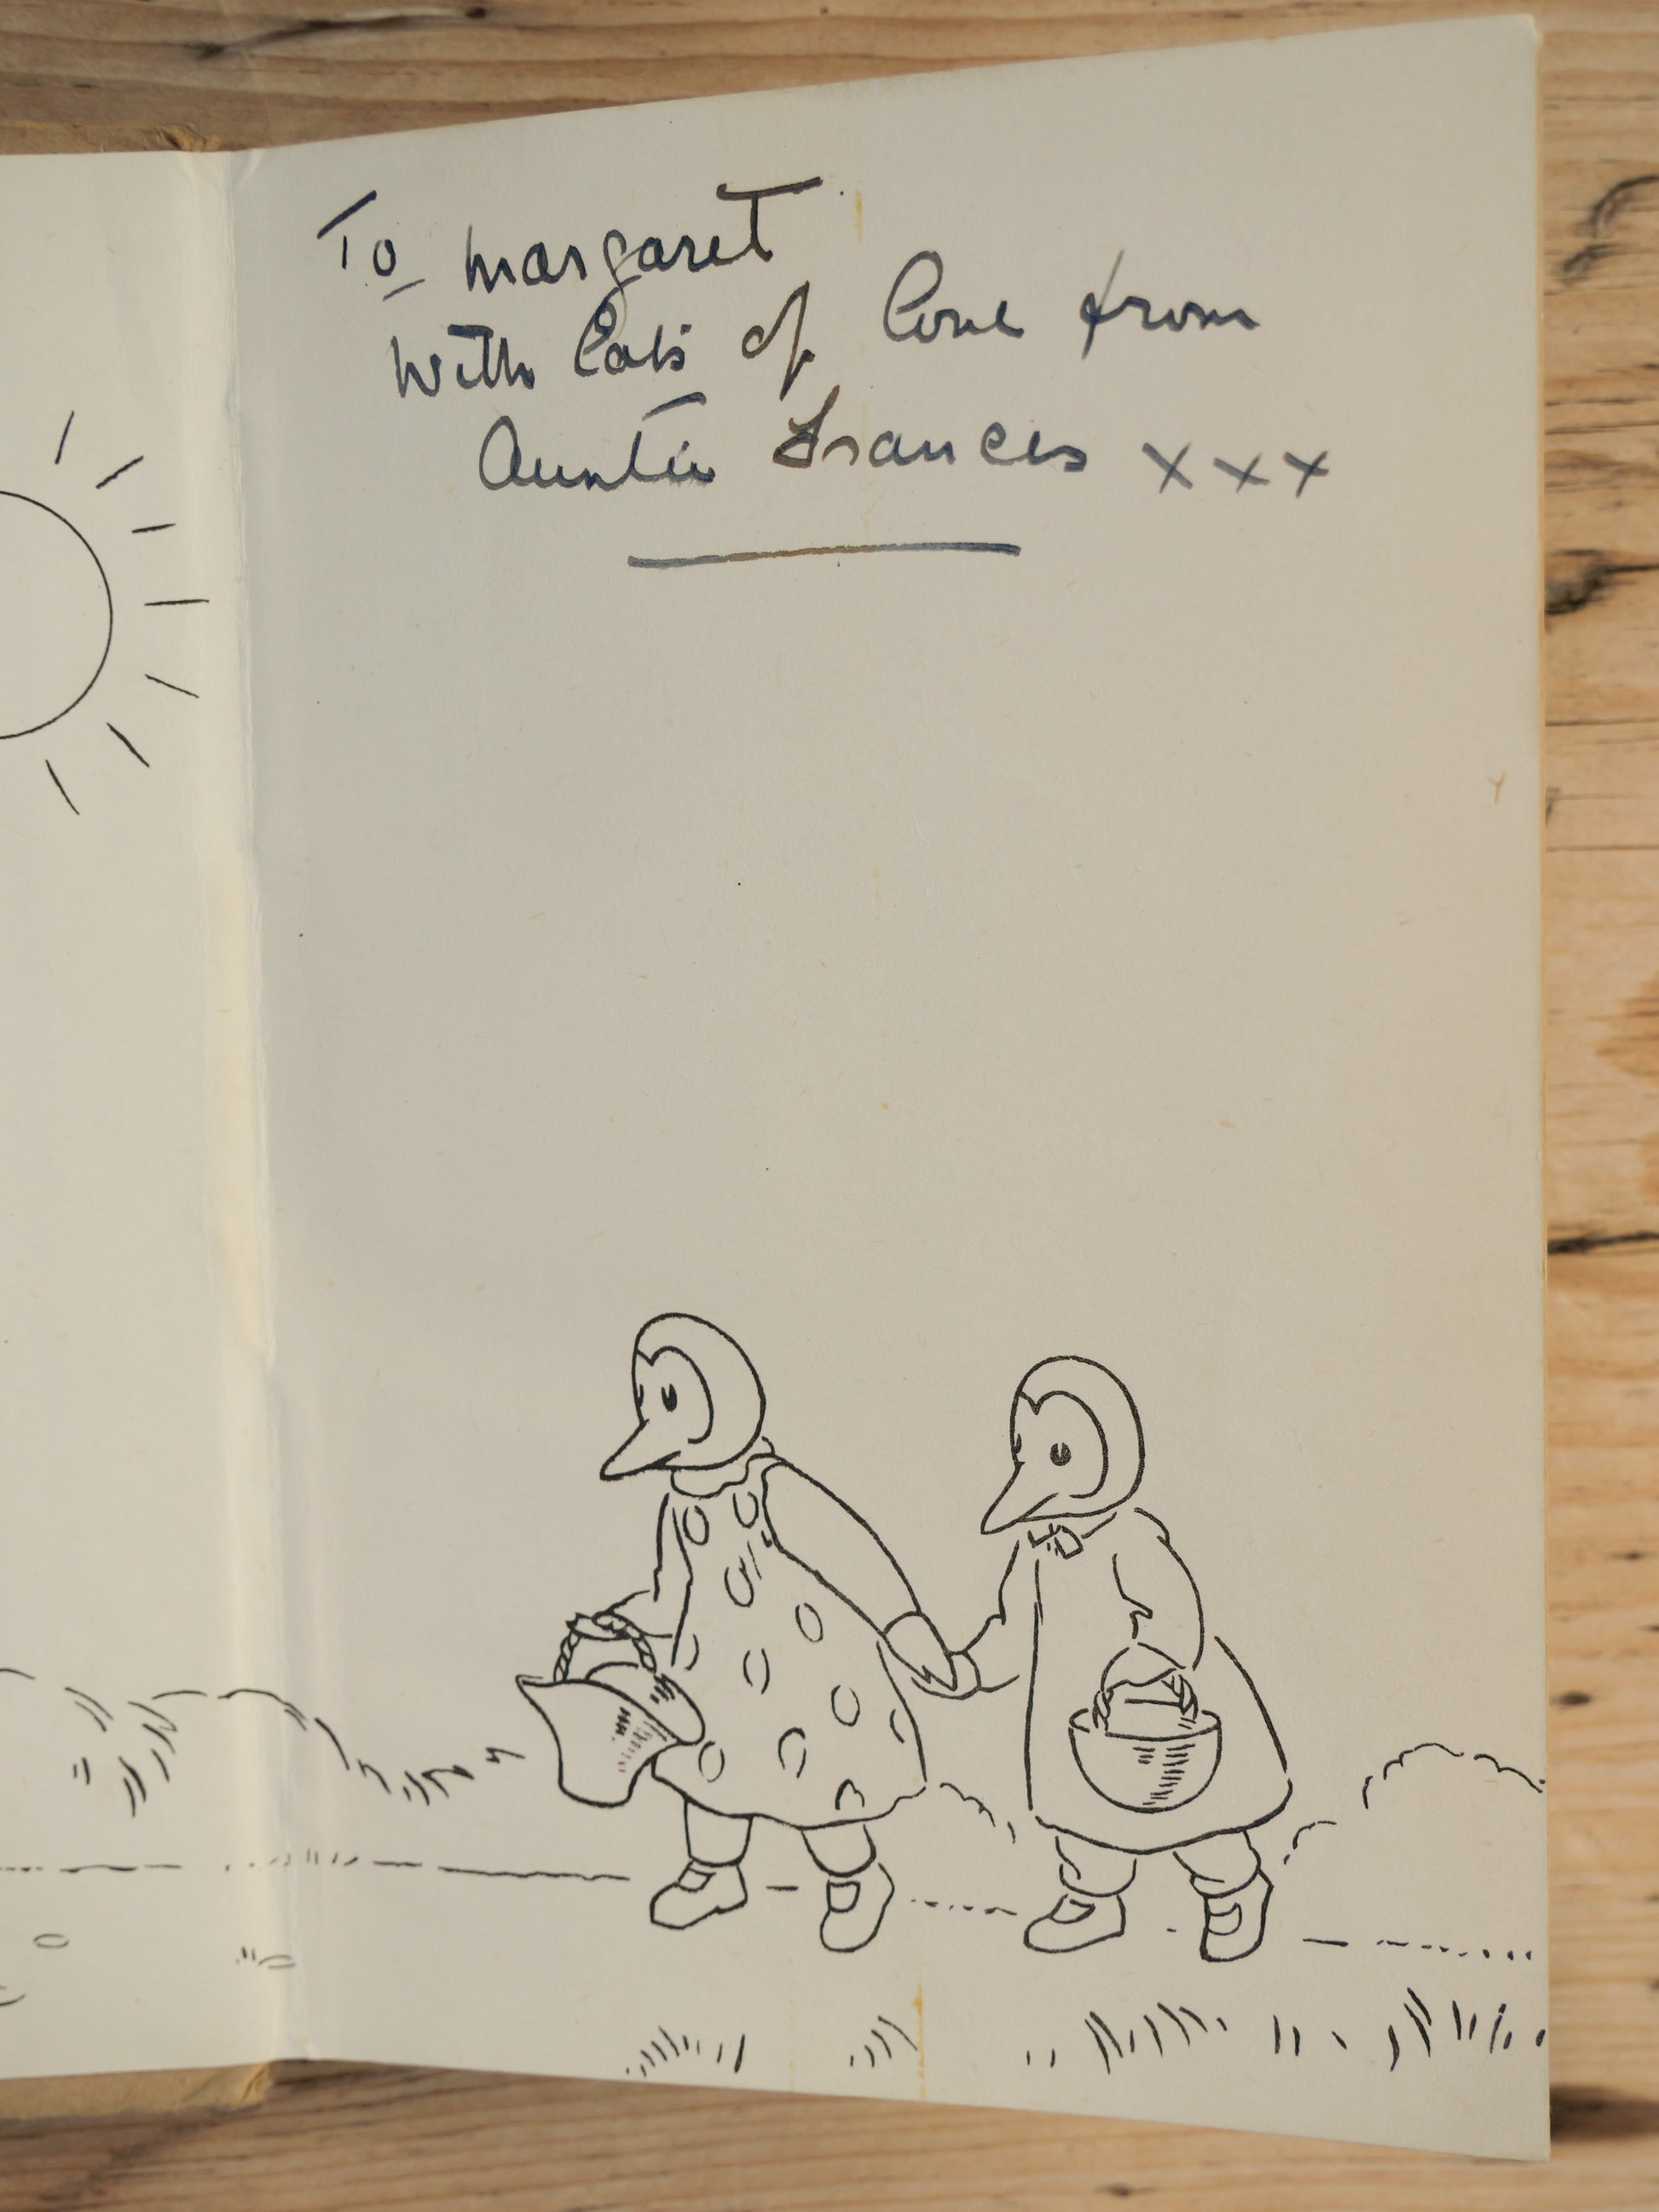 To Margaret
With Lots of Love from
Auntie Frances xxx